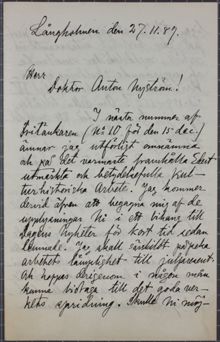 Långholmen den 27.11.89.
Herr
Doktor Anton Nyström!
I nästa nummer af
Fritänkaren (No 10 för den 15 dec.)
ämnar jag utförligt omnämna
och på det varmaste framhålla Edert
utmärkta och betydelsefulla kul-
turhistoriska arbete. Jag kommer
dervid äfven att begagna mig af de
upplysningar Ni i ett bihang till
Dagens Nyheter för kort tid sedan
lemnade. Jag skall särskildt påpeka
arbetets lämplighet till julpresent
och hoppas derigenom i någon mån
kunna bidraga till det goda ver-
kets spridning. Skulle Ni möj-